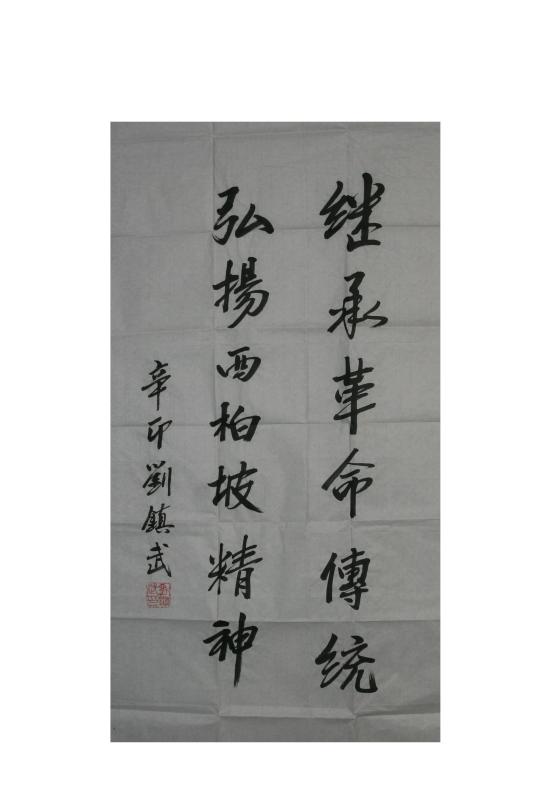 继承革命傳统
弘揚西柏坡精神
辛卯劉鎮武